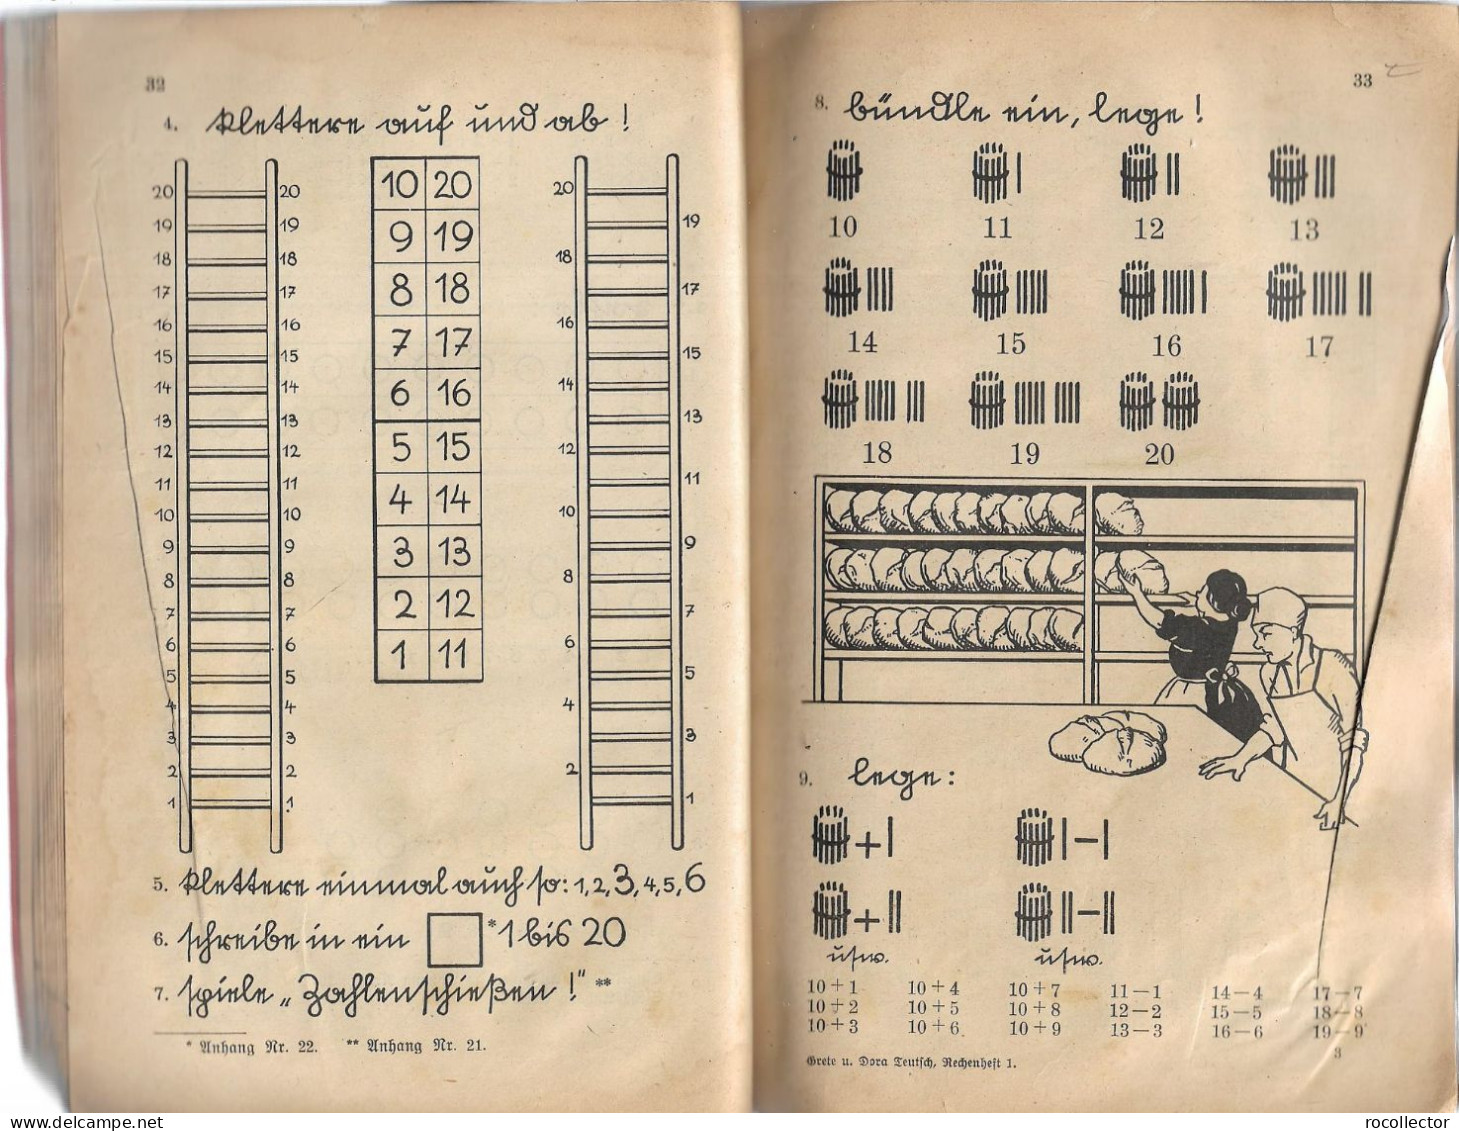 32
4. klettere auf und ab!
20 20
19 19
18 18
17 17
16 16
15 15
14 14
13 13
12 12
11 11
10 10
9 9
8 8
7 7
6 6
5 5
4 4
3 3
2 2
1 1
10 20
9 19
8 18
7 17
6 16
5 15
4 14
3 13
2 12
1 11
20
19
18
17
16
15
14
13
12
11
10
9
8
7
6
5
4
3
2
1
5. klettere einmal auch so: 1, 2, 3, 4, 5, 6
6. schreibe in ein * 1 bis 20
7. spiele „Zahlenschießen!" **
* Anhang Nr. 22. ** Anhang Nr. 21.
33
8. bündle ein, lege!
10 11 12 13
14 15 16 17
18 19 20
9. lege:
+ −
+ −
usw. usw.
10+1 10+4 10+7 11−1 14−4 17−7
10+2 10+5 10+8 12−2 15−5 18−8
10+3 10+6 10+9 13−3 16−6 19−9
3
Grete u. Dora Teutsch, Rechenheft 1.
delcampe.net rocollector